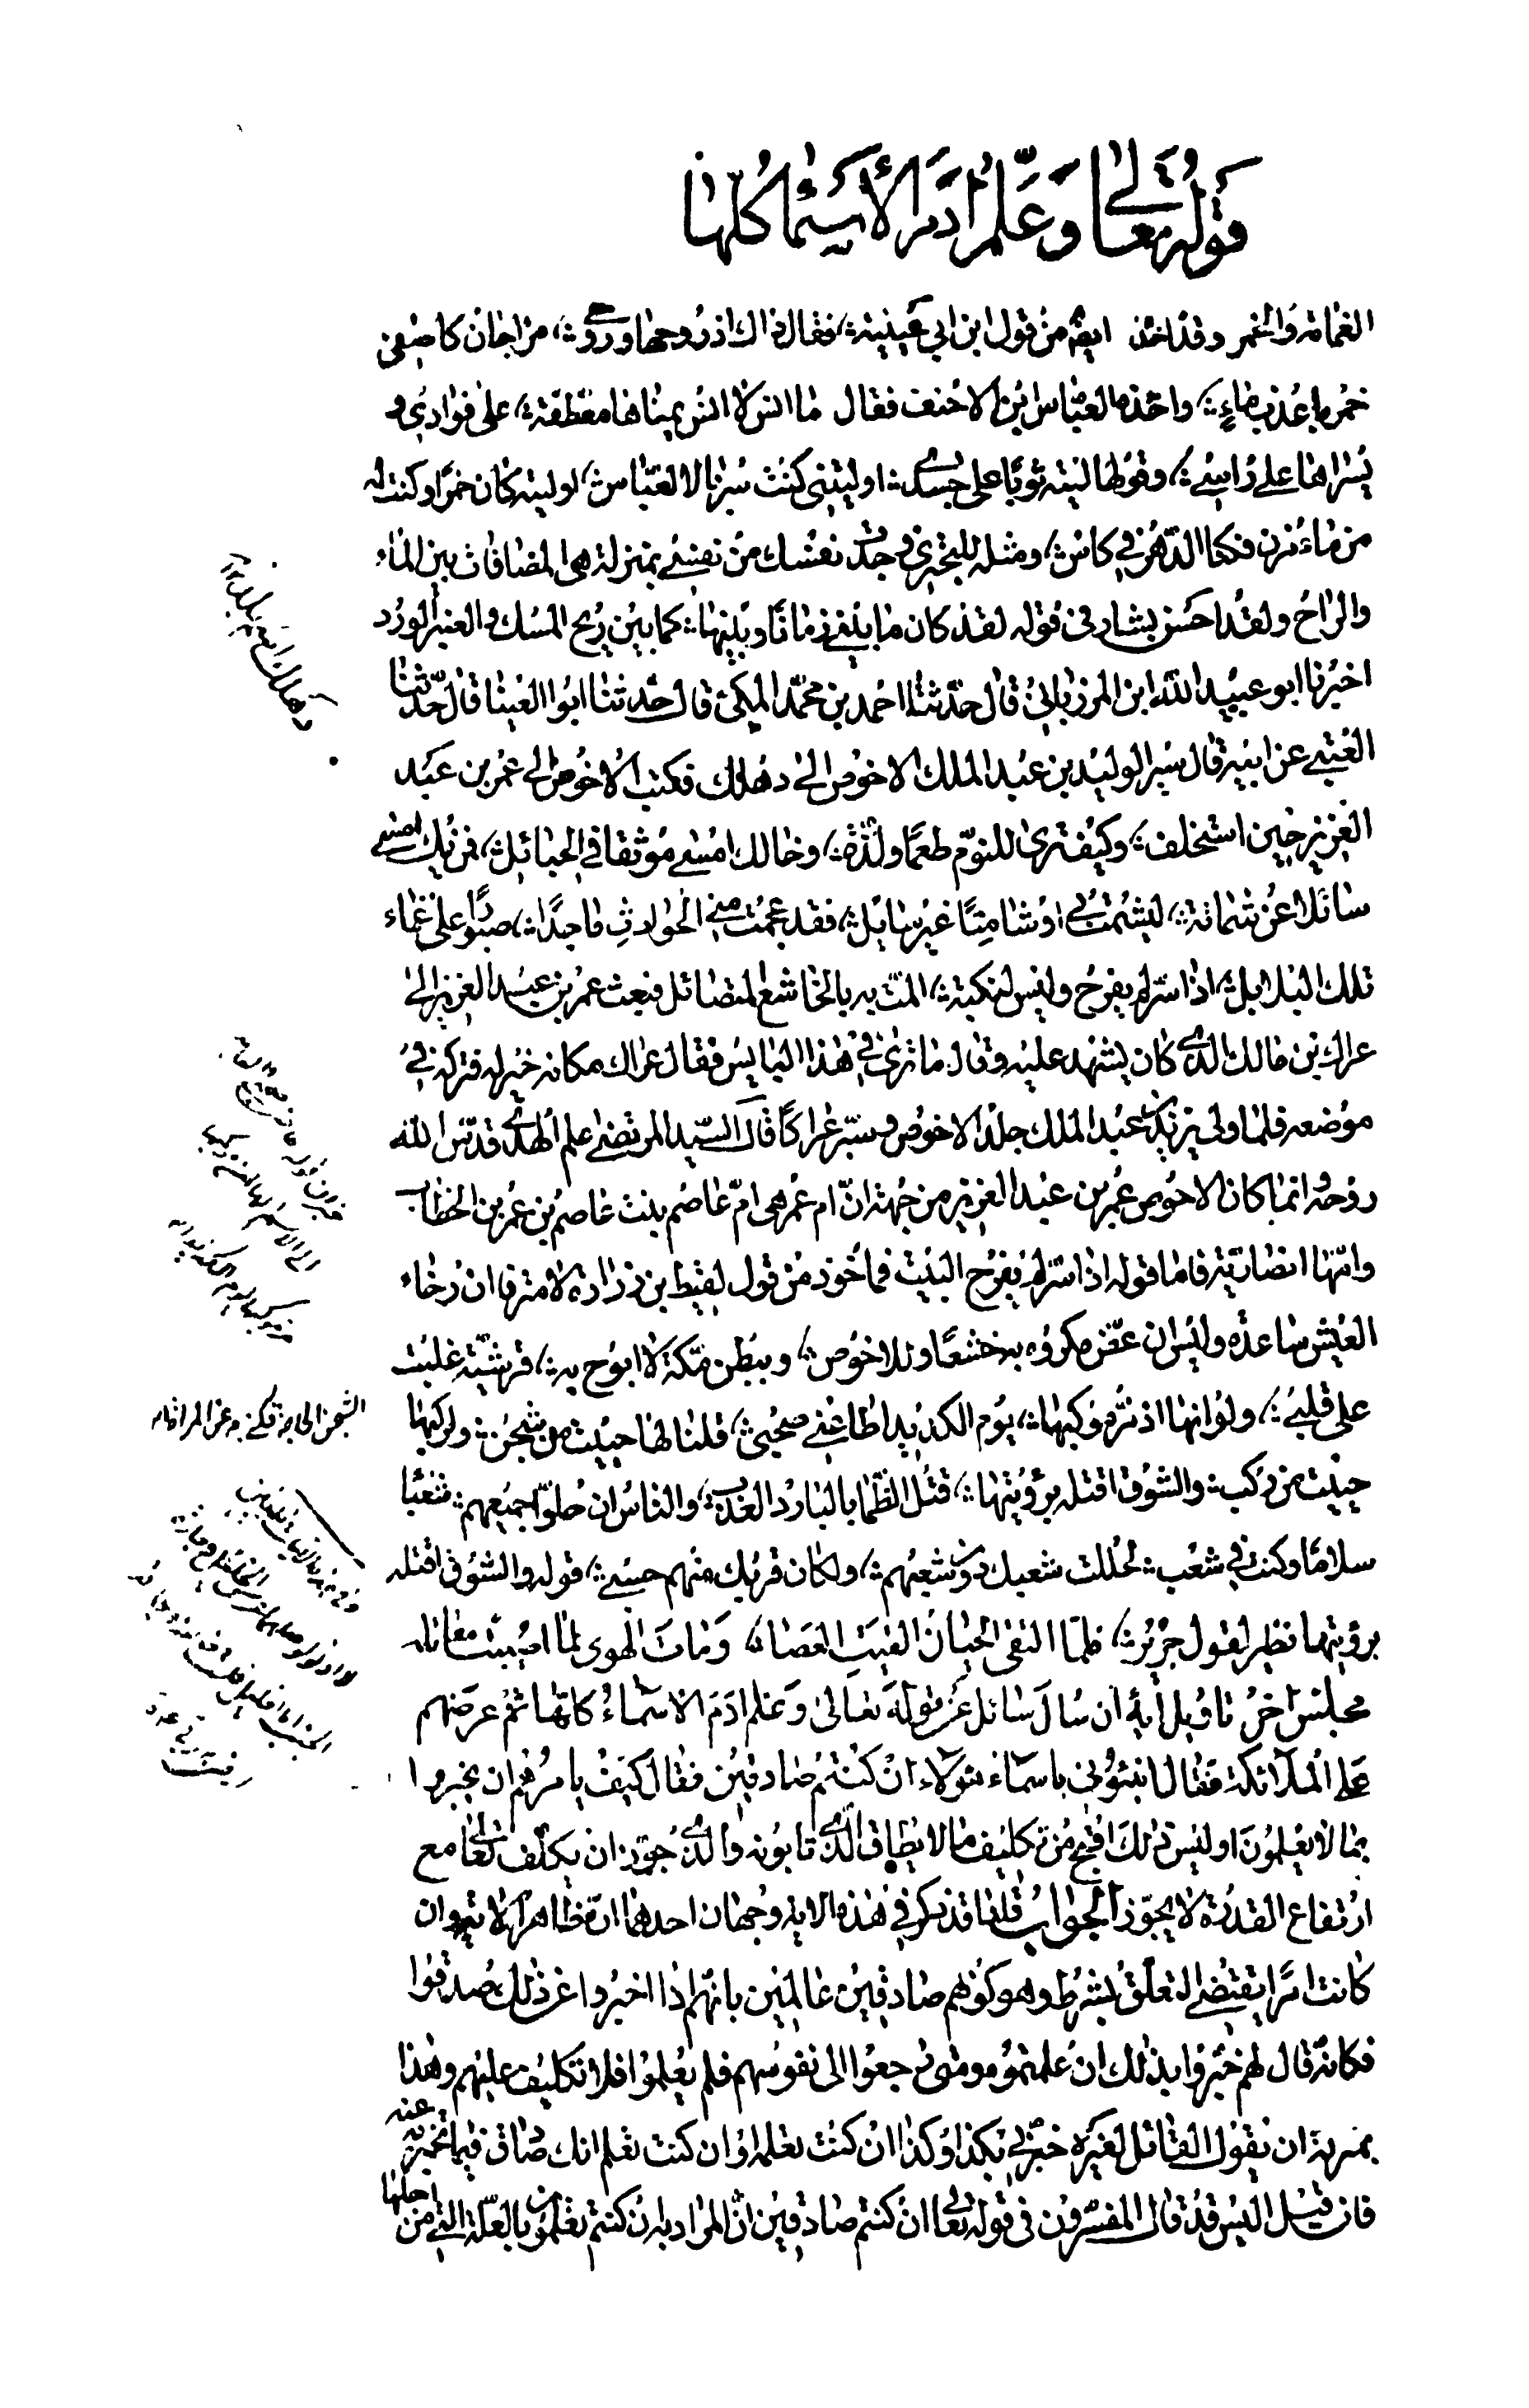 قوله تعالى وعلم ادم الاسماء كلها
الغمامة والخمر وقد اخذ ايضا من قول ابن ابي عيينة فقال ذاك اذ روحها وروحي مزاجان كاصفى
خمر باعذب ماء واخذه العباس بن الاحنف فقال ما انس لا انس يمناها معطفة على فوادي و
يسراها على راسي وقولها ليته ثوبا على جسدي او ليتني كنت سربالا لعباس او ليته كان خمرا وكنت له
من ماء مزن فكنا الدهر في كاس ومثله للبحتري وجدت نفسك من نفسي بمنزلة هي المصافات بين الماء
والراح ولقد احسن بشار في قوله لقد كان ما بيني زمانا وبينها كما بين ريح المسك والعنبر الورد
اخبرنا ابو عبيد الله ابن المرزباني قال حدثنا احمد بن محمد المكي قال حدثنا ابوا العينا قال حدثنا
العتبي عن ابيه قال سير الوليد بن عبد الملك الاحوص الى دهلك فكتب الاحوص الى عمر بن عبد
العزيز حين استخلف وكيف ترى للنوم طعما ولذة وخالك امسى موثقا في الحبائل فمن يك امسى
سائلا عن شماتة ليشمت بي او شامتا غير سايل فقد عجمت مني الحوادث ماجدا صبورا على غماء
تلك البلابل اذا سر لم يفرح وليس لنكبة المت به بالخاشع المتضائل فبعث عمر بن عبد العزيز الى
عراك بن مالك الذي كان يشهد عليه وقال ما ترى في هذا البايس فقال عراك مكانه خير له فتركه في
موضعه فلما ولى يزيد بن عبد الملك جلد الاحوص وسير عراكا قال السيد المرتضى علم الهدى قدس الله
روحه انما كان الاحوص عمر بن عبد العزيز من جهة ان ام عمر هي ام عاصم بنت عاصم بن عمر بن الخطاب
وانها انصارية فاما قوله اذا سر لم يفرح البيت فماخوذ من قول لقيط بن زرارة لا مترفا ان رخاء
العيش ساعده وليس ان عض مكروه به خشعا وللاحوص وببطن مكة لا ابوح به قرشية غلبت
على قلبي ولو انها اذ تمر موكبها يوم الكديد اطاعني صحبي قلنا لها حييت من شجن ولركبها
حييت من ركب والشوق اقتله برؤيتها قتل الظما بالبارد العذب والناس ان حلوا جميعهم شعبا
سلاما وكنت في شعب لحللت شعبك دون شعبهم ولكان قربك منهم حسبي قوله والشوق اقتله
برؤيتها نظير لقول جرير فلما التقى الحيان القيت العصا ومات الهوى لما اصيبت مقاتله
مجلس اخر تاويل اية ان سال سائل عن قوله تعالى وعلم ادم الاسماء كلها ثم عرضهم
على الملائكة فقال انبئوني باسماء هؤلاء ان كنتم صادقين فقال كيف يامرهم ان يخبروا
بما لا يعلمون اوليس ذلك اقبح من تكليف ما لا يطاق الذي تابونه والذي جوز ان يكلف تعالى مع
ارتفاع القدرة لا يجوز الجواب قلنا قد ذكر في هذه الاية وجهان احدهما ان ظاهر الاية وان
كانت امرا يقتضي التعلق بشرط وهو كونهم صادقين عالمين بانهم اذا اخبروا عن ذلك صدقوا
فكانه قال لهم خبروا بذلك ان علمتموه ومتى رجعوا الى نفوسهم فلم يعلموا فلا تكليف عليهم وهذا
بمنزلة ان يقول القائل لغيره خبرني بكذا وكذا ان كنت تعلمه او ان كنت تعلم انك صادق فيما تخبر به عنه
فان قيل اليس قد قال المفسرون في قوله تعالى ان كنتم صادقين ان المراد به ان كنتم تعلمون بالعلة التي من اجلها
الشجن الحاجة